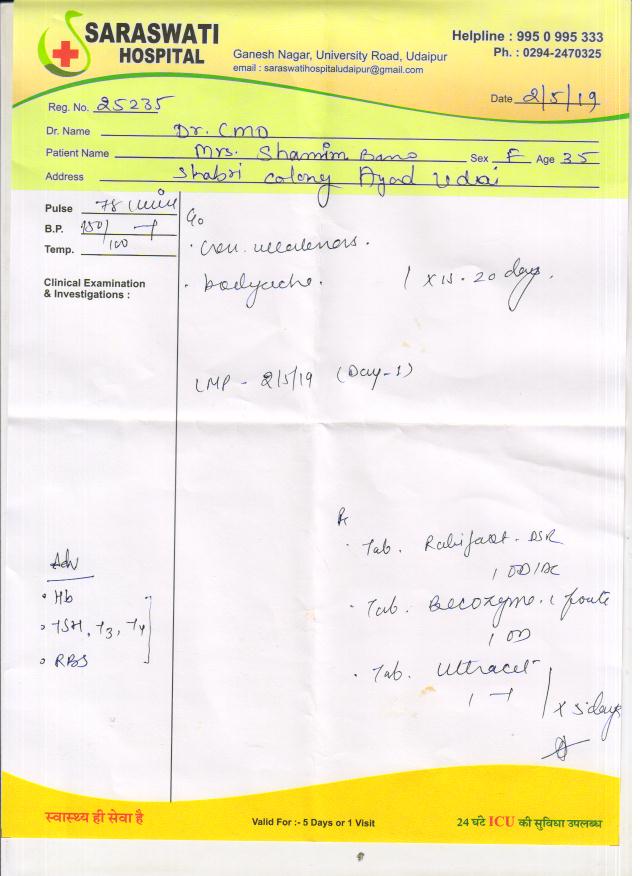 SARASWATI
HOSPITAL
Ganesh Nagar, University Road, Udaipur
email : saraswatihospitaludaipur@gmail.com
Helpline : 995 0 995 333
Ph. : 0294-2470325
Reg. No. 25235
Date 2/5/19
Dr. Name Dr. CMO
Patient Name Mrs. Shamim Bano Sex F Age 35
Address Shabri colony Ayad
Pulse 78
B.P. 150/100
Temp.
Clinical Examination
& Investigations :
C/o
• Gen. weakness.
• bodyache. 1 x 15-20 days.
LMP - 2/5/19 (Day-1)
Rx
• Tab. Rabifast-DSR
1 OD/AC
• Tab. Becozyme. c forte
1 OD
• Tab. Ultracet
x 5 days
Adv
• Hb
• TSH, T3, T4
• RBS
स्वास्थ्य ही सेवा है
Valid For :- 5 Days or 1 Visit
24 घंटे ICU की सुविधा उपलब्ध